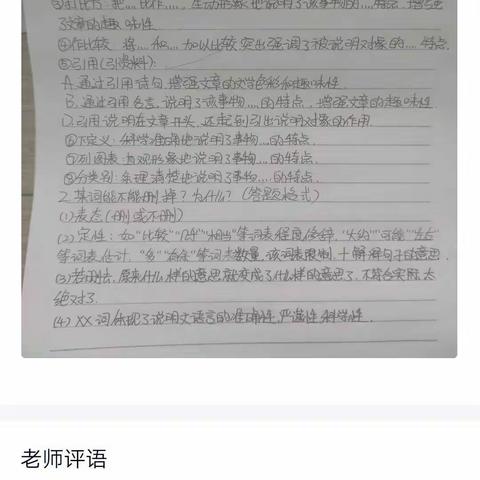 ③打比方：把……比作……，生动形象地说明了该事物的……特点，增强
了文章的趣味性
④作比较 将……和……加以比较突出强调了被说明对象的……特点.
⑤引用(引资料)：
A.通过引用诗句,增强文章的文学色彩和趣味性.
B.通过引用名言,说明了该事物……的特点，增强文章的趣味性
D.引用说明在文章开头,还起到引出说明对象的作用
⑥下定义：科学准确地说明了事物……的特点.
⑦列图表：直观形象地说明了事物……的特点.
⑧分类别：条理清楚地说明了事物……的特点.
2.某词能不能删掉？为什么？(答题格式)
(1)表态(删或不删)
(2)定性：如"比较""几乎""相当"等词表程度修饰，"大约""可能""左右"
等词表估计，"多""有余"等词表数量,该词表限制，十解释句子的意思.
(3)若删去,原来什么样的意思就变成了什么样的意思了,不符合实际,太
绝对了.
(4)XX词体现了说明文语言的准确性,严谨性,科学性.
老师评语